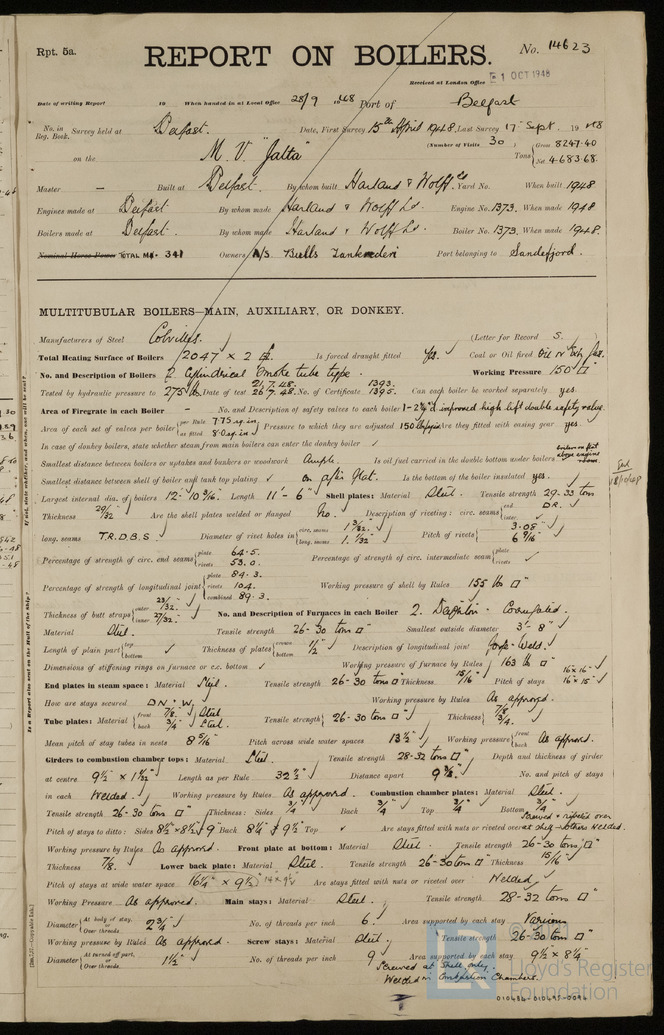 Rpt. 5a.
REPORT ON BOILERS.
No. 14623
Received at London Office 21 OCT 1948
Date of writing Report 19 When handed in at Local Office 28/9 1948 Port of Belfast
No. in Reg. Book. Survey held at Belfast. Date, First Survey 15th April 1948. Last Survey 17 Sept. 1948
(Number of Visits 30)
on the M. V. "Jalta" Tons { Gross 8247.40 Net 4683.68
Master — Built at Belfast. By whom built Harland & Wolff Ld Yard No. When built 1948
Engines made at Belfast By whom made Harland & Wolff Ld. Engine No. 1373. When made 1948
Boilers made at Belfast. By whom made Harland & Wolff Ld. Boiler No. 1373. When made 1948.
Nominal Horse Power TOTAL MN. 341 Owners A/S Bulls Tankrederi Port belonging to Sandefjord.
MULTITUBULAR BOILERS—MAIN, AUXILIARY, OR DONKEY.
Manufacturers of Steel Colvilles. (Letter for Record S.)
Total Heating Surface of Boilers 2047 × 2 Is forced draught fitted Yes. Coal or Oil fired Oil or Exh. Gas.
No. and Description of Boilers 2 Cylindrical Smoke tube type. Working Pressure 150
Tested by hydraulic pressure to 275 lb. Date of test 21.7.48. 26.7.48. No. of Certificate 1393. 1395. Can each boiler be worked separately yes.
Area of Firegrate in each Boiler – No. and Description of safety valves to each boiler 1 - 2 1/4" d. improved high lift double safety valve.
Area of each set of valves per boiler { per Rule 7.75 sq. in. as fitted 8.0 sq. in. Pressure to which they are adjusted 150 Are they fitted with easing gear yes.
In case of donkey boilers, state whether steam from main boilers can enter the donkey boiler ✓
Smallest distance between boilers or uptakes and bunkers or woodwork Ample. Is oil fuel carried in the double bottom under boilers boilers on flat above engine room.
Smallest distance between shell of boiler and tank top plating ✓ on after flat. Is the bottom of the boiler insulated yes.
Largest internal dia. of boilers 12'- 10 9/16. Length 11'- 6" Shell plates: Material Steel. Tensile strength 29-33 tons
Thickness 29/32 Are the shell plates welded or flanged No. Description of riveting: circ. seams { end D.R. inter.
long. seams T.R.D.B.S. Diameter of rivet holes in { circ. seams 1 3/32. long. seams 1. 1/32 Pitch of rivets { 3.08" 6 9/16
Percentage of strength of circ. end seams { plate 64.5. rivets 53.0. Percentage of strength of circ. intermediate seam { plate rivets ✓
Percentage of strength of longitudinal joint { plate 84.3. rivets 104. combined 89.3. Working pressure of shell by Rules 155 lbs □"
Thickness of butt straps { outer 23/32. inner 27/32. No. and Description of Furnaces in each Boiler 2. Deighton - Corrugated.
Material Steel. Tensile strength 26-30 tons □ Smallest outside diameter 3'- 8"
Length of plain part { top bottom Thickness of plates { crown bottom 1/2" Description of longitudinal joint Forge Weld.
Dimensions of stiffening rings on furnace or c.c. bottom ✓ Working pressure of furnace by Rules 163 lb □
End plates in steam space: Material Steel. Tensile strength 26-30 tons □ Thickness 15/16 Pitch of stays 16 × 16 16 × 15"
How are stays secured D N. + W. Working pressure by Rules As approved.
Tube plates: Material { front 7/8. back 3/4" Steel Steel. Tensile strength { 26-30 tons □" Thickness { 7/8 3/4.
Mean pitch of stay tubes in nests 8 5/16" Pitch across wide water spaces 13 1/2" Working pressure { front back As approved.
Girders to combustion chamber tops: Material Steel. Tensile strength 28-32 tons □" Depth and thickness of girder
at centre 9 1/2" × 1 1/32 Length as per Rule 32 1/2" Distance apart 9 3/8". No. and pitch of stays
in each Welded. Working pressure by Rules As approved. Combustion chamber plates: Material Steel.
Tensile strength 26-30 tons □ Thickness: Sides 3/4" Back 3/4" Top 3/4" Bottom 3/4"
Pitch of stays to ditto: Sides 8 1/2" × 8 1/2" & 9" Back 8 1/4" & 9 1/2" Top ✓ Are stays fitted with nuts or riveted over Screwed & riveted over at shell - others Welded.
Working pressure by Rules As approved. Front plate at bottom: Material Steel. Tensile strength 26-30 tons □"
Thickness 7/8. Lower back plate: Material Steel. Tensile strength 26-30 tons □ Thickness 15/16"
Pitch of stays at wide water space 16 1/4" × 9 1/2" Are stays fitted with nuts or riveted over Welded
Working Pressure As approved. Main stays: Material Steel. Tensile strength 28-32 tons □"
Diameter { At body of stay, or Over threads. 2 3/4" No. of threads per inch 6. Area supported by each stay Various
Working pressure by Rules As approved. Screw stays: Material Steel. Tensile strength 26-30 tons □"
Diameter { At turned off part, or Over threads. 1 1/2" No. of threads per inch 9 Area supported by each stay 9 1/2 × 8 1/4"
Screwed at Shell only.
Welded in Combustion Chambers.
Lloyd's Register
Foundation
010484-010495-0094